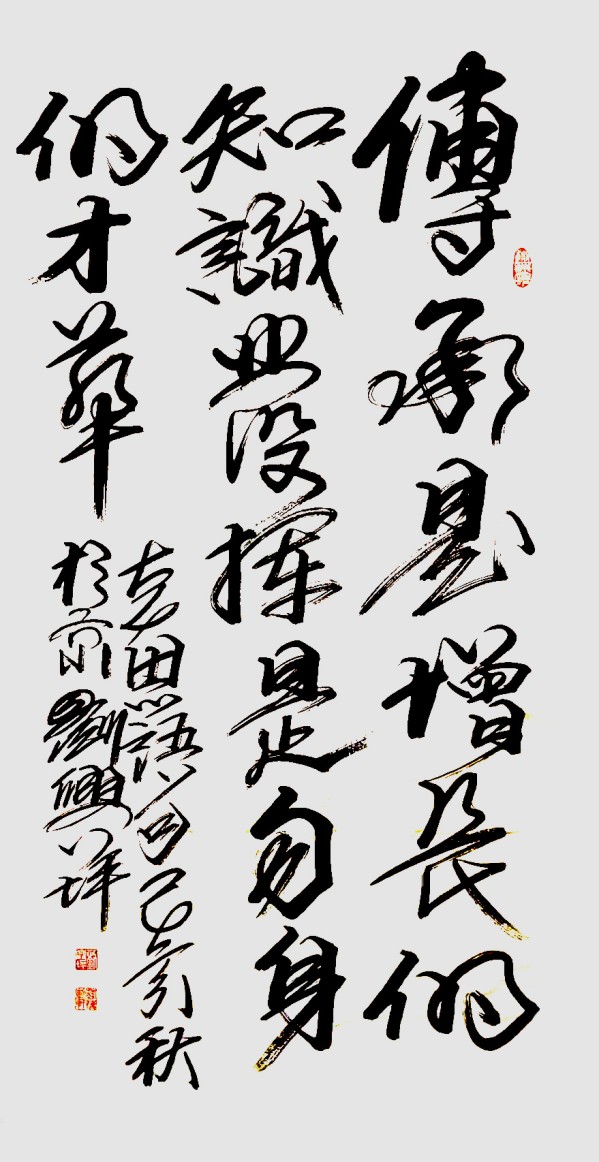 傳承是增長的
知識發揮是自身
的才華
克田語句己亥秋
於京劉興祥